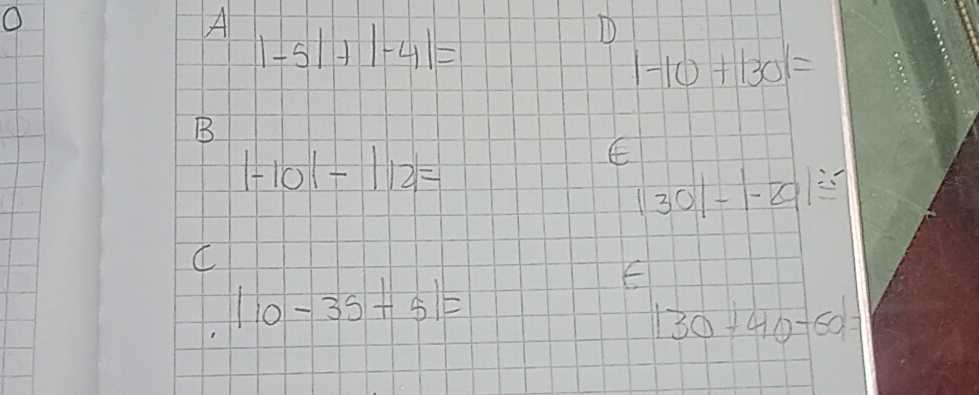 0
A
|-5| + |-4| =
B
|-10| - |12| =
C
|10 - 35 + 5| =
D
|-10 + |30| =
E
|30| - |-29| =
E
|30 + 40 - 60| =